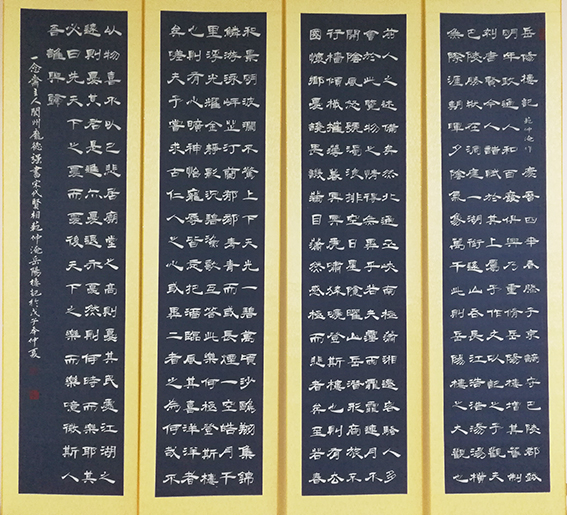 岳陽樓記 範仲淹作 慶曆四年春滕子京謫守巴陵郡越
明年政通人和百廢俱興乃重修岳陽樓增其舊制
刻唐賢今人詩賦於其上屬予作文以記之予觀夫
巴陵勝狀在洞庭一湖銜遠山吞長江浩浩湯湯橫
無際涯朝暉夕陰氣象萬千此則岳陽樓之大觀也
前人之述備矣然則北通巫峽南極瀟湘遷客騷人多
會於此覽物之情得無異乎若夫霪雨霏霏連月不
開陰風怒號濁浪排空日星隱曜山岳潛形商旅不
行檣傾楫摧薄暮冥冥虎嘯猿啼登斯樓也則有去
國懷鄉憂讒畏譏滿目蕭然感極而悲者矣至若春
和景明波瀾不驚上下天光一碧萬頃沙鷗翔集錦
鱗游泳岸芷汀蘭郁郁青青而或長煙一空皓月千
里浮光躍金靜影沉璧漁歌互答此樂何極登斯樓
也則有心曠神怡寵辱皆忘把酒臨風其喜洋洋者
矣嗟夫予嘗求古仁人之心或異二者之為何哉不
以物喜不以己悲居廟堂之高則憂其民處江湖之
遠則憂其君是進亦憂退亦憂然則何時而樂耶其
必曰先天下之憂而憂後天下之樂而樂噫微斯人
吾誰與歸
一念齋主人閬州龐德謹書宋代賢相範仲淹岳陽樓記於戊子年仲夏